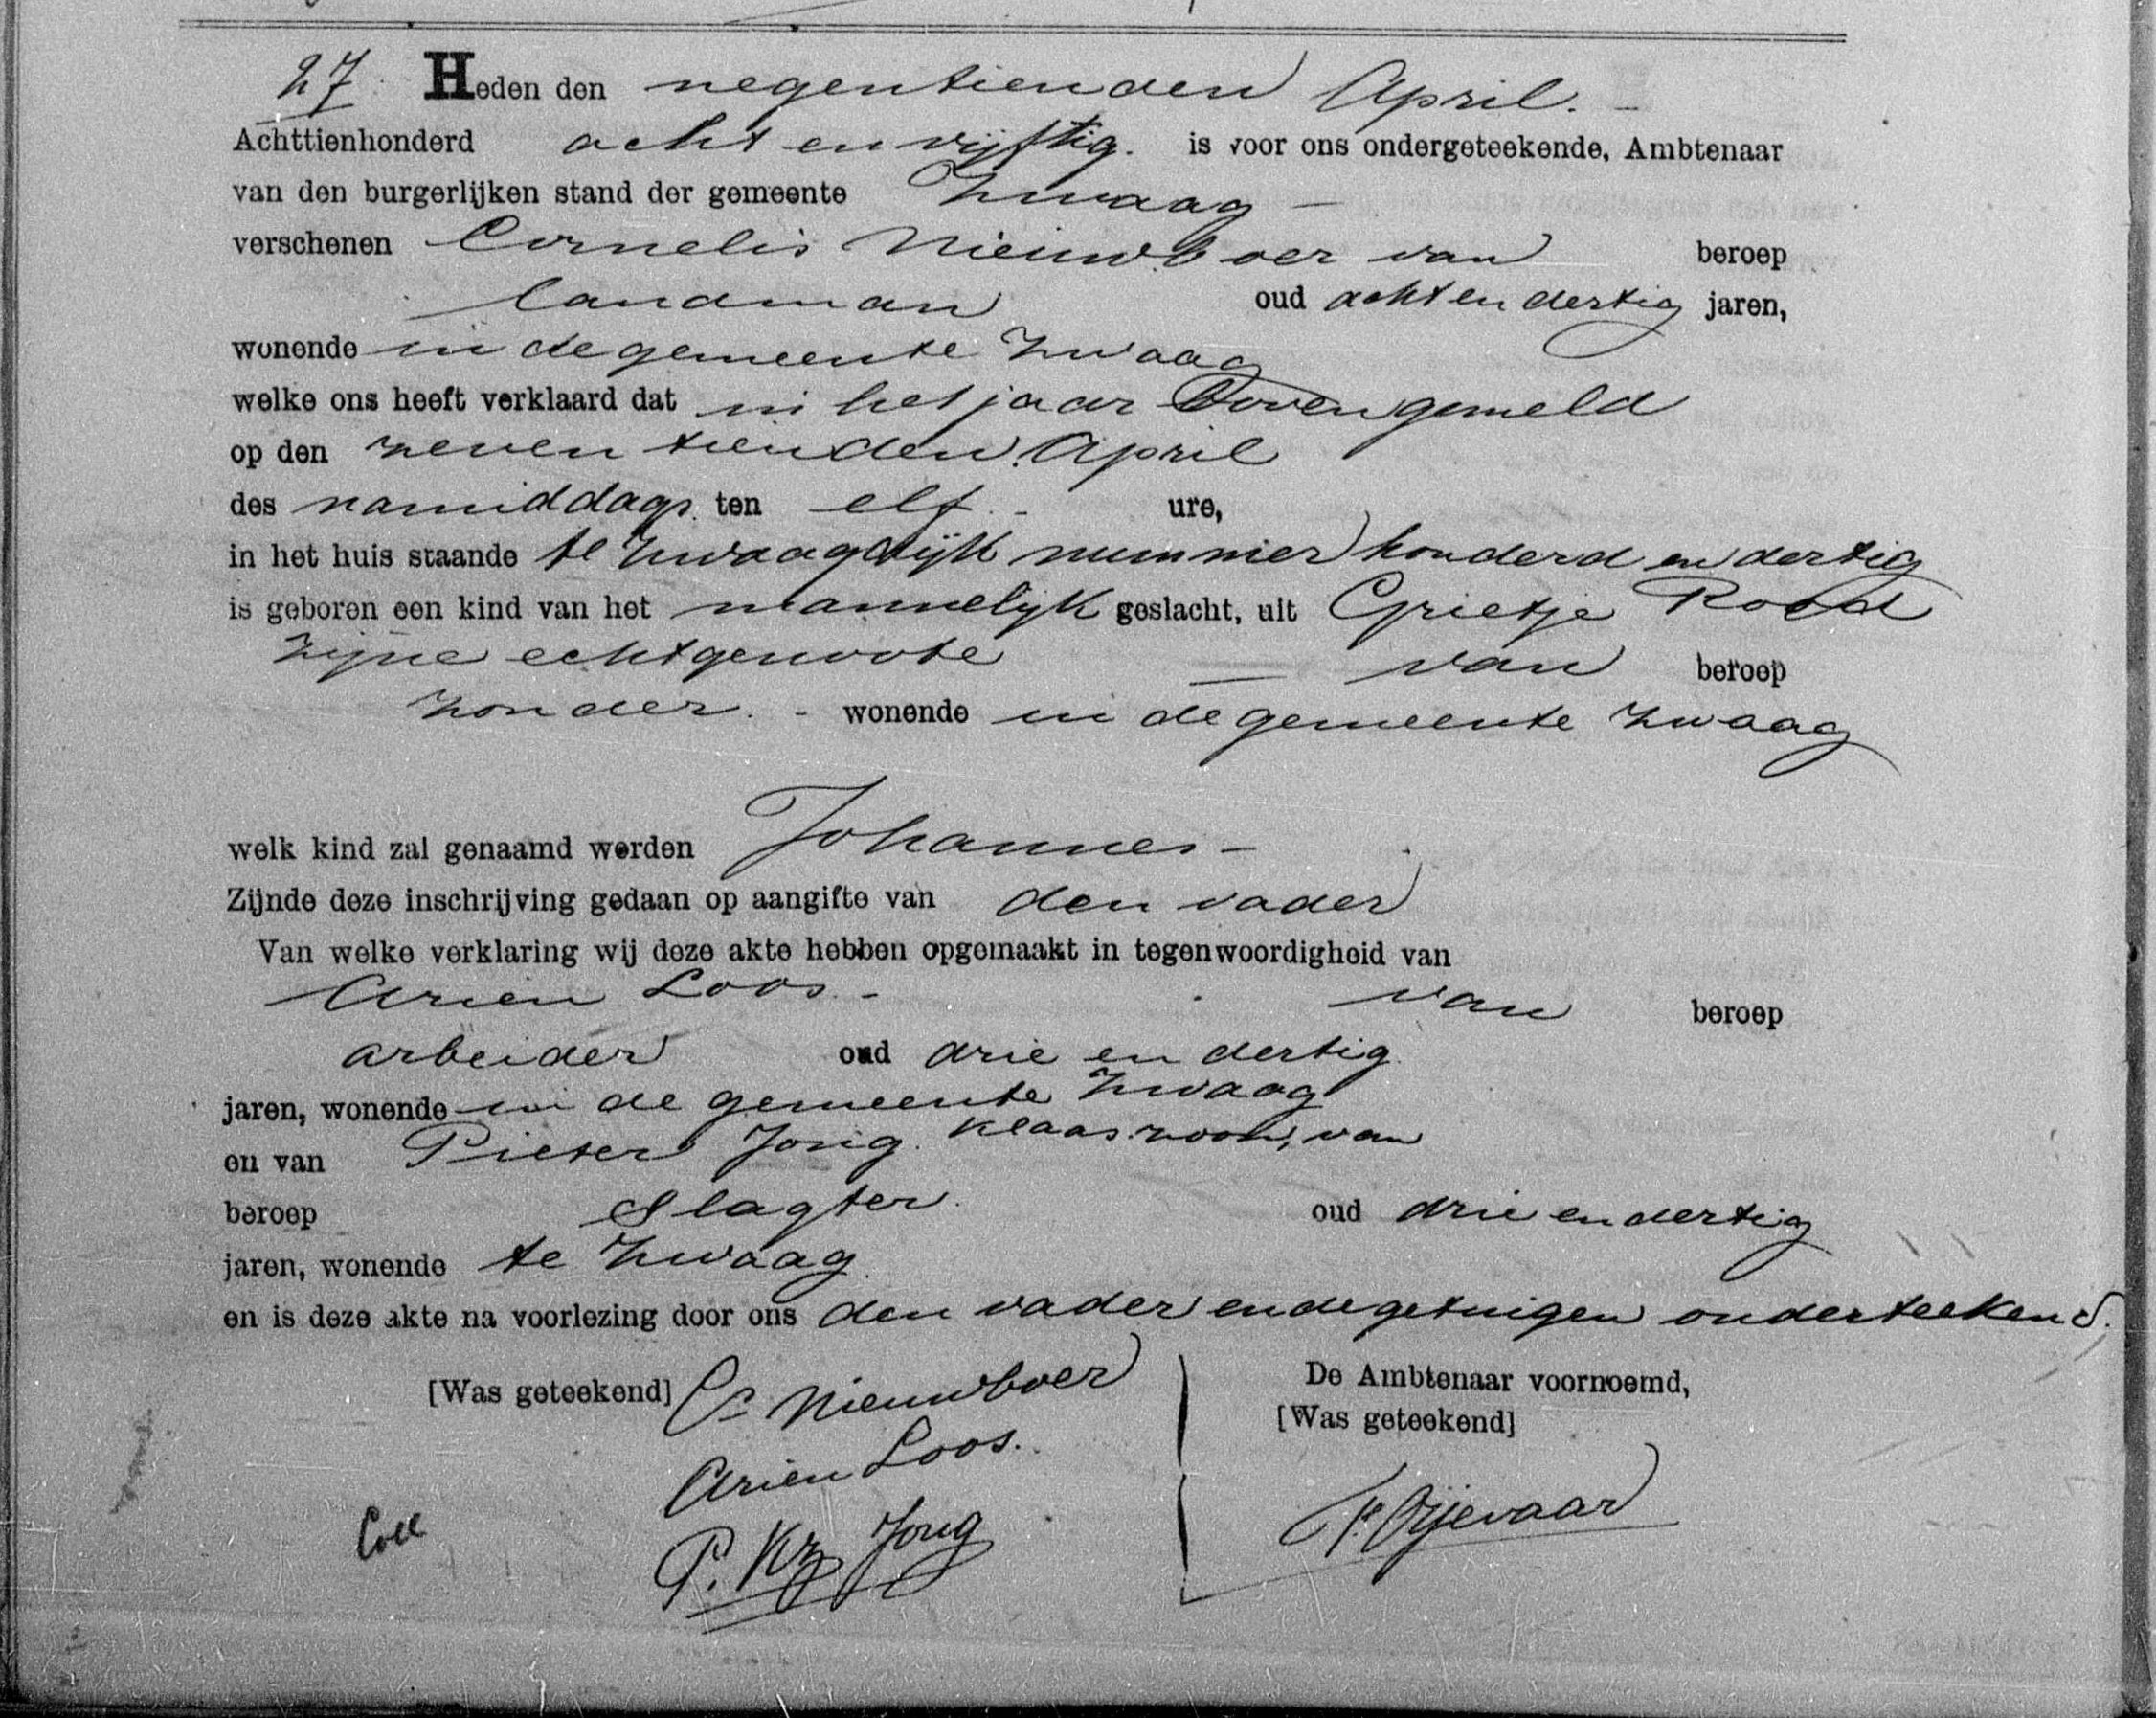 27. Heden den negentienden April. -
Achttienhonderd acht en vijftig. is voor ons ondergeteekende, Ambtenaar
van den burgerlijken stand der gemeente Zwaag -
verschenen Cornelis Nieuwboer van beroep
landman oud acht en dertig jaren,
wonende in de gemeente Zwaag
welke ons heeft verklaard dat in het jaar Bovengemeld
op den zeventienden April
des namiddags ten elf. - ure,
in het huis staande te Zwaagdijk nummer honderd en dertig
is geboren een kind van het mannelijk geslacht, uit Grietje Rood
zijne echtgenoote - van beroep
zonder. - wonende in de gemeente Zwaag
welk kind zal genaamd worden Johannes -
Zijnde deze inschrijving gedaan op aangifte van den vader
Van welke verklaring wij deze akte hebben opgemaakt in tegenwoordigheid van
Arien Loos. - van beroep
arbeider oud drie en dertig
jaren, wonende in de gemeente Zwaag
en van Pieter Jong. Klaaszoon, van
beroep Slagter. oud drie en dertig
jaren, wonende te Zwaag.
en is deze akte na voorlezing door ons den vader en de getuigen onderteekend.
[Was geteekend] Cs Nieuwboer De Ambtenaar voornoemd,
[Was geteekend]
Arien Loos.
P. Kz Jong